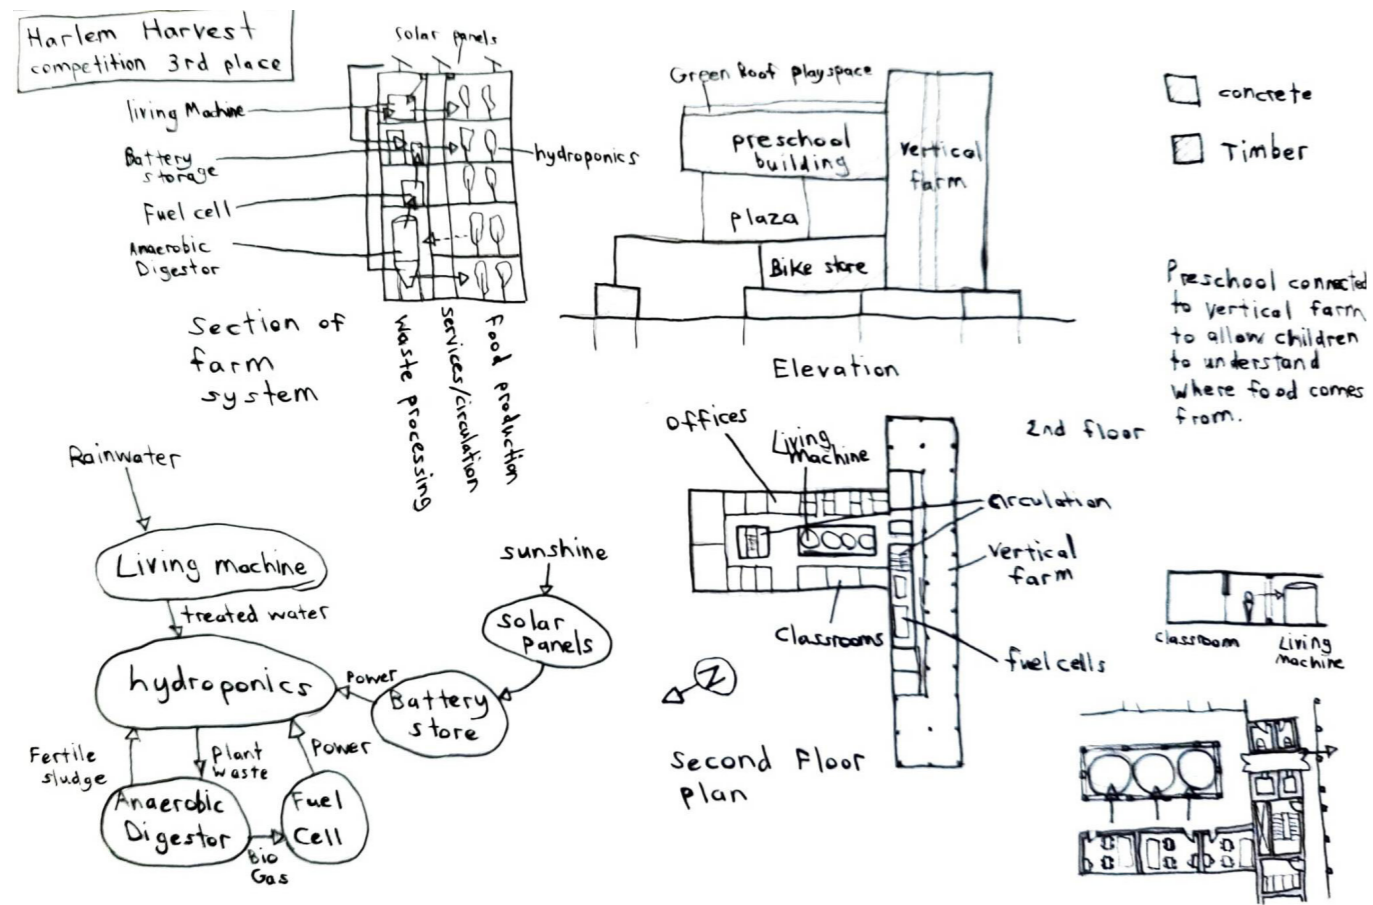 Harlem Harvest
competition 3rd place
solar panels
living Machine
Battery
storage
Fuel cell
Anaerobic
Digestor
hydroponics
Section of
farm
system
Waste processing
services/circulation
food production
Green Roof playspace
preschool
building
vertical
farm
plaza
Bike store
Elevation
concrete
Timber
Preschool connected
to vertical farm
to allow children
to understand
where food comes
from.
Rainwater
Living machine
treated water
hydroponics
Fertile
sludge
Plant
waste
Power
Anaerobic
Digestor
Bio
Gas
Fuel
Cell
sunshine
solar
panels
Power
Battery
store
offices
Living
Machine
2nd floor
circulation
vertical
farm
Classrooms
fuel cells
N
Second Floor
plan
classroom
Living
Machine